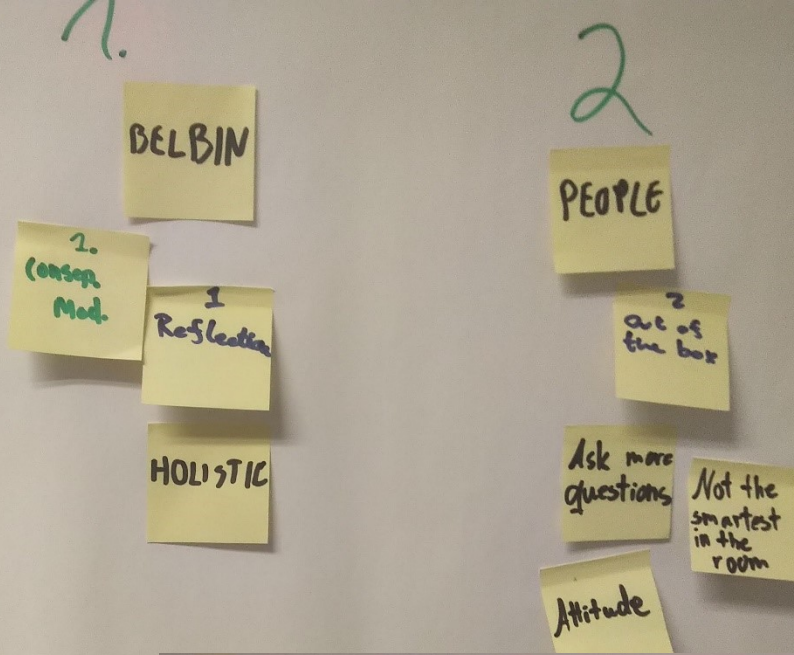 1.
BELBIN
1.
Consep.
Mod.
1
Reflection
HOLISTIC
2
PEOPLE
2
out of
the box
Ask more
questions
Not the
smartest
in the
room
Attitude